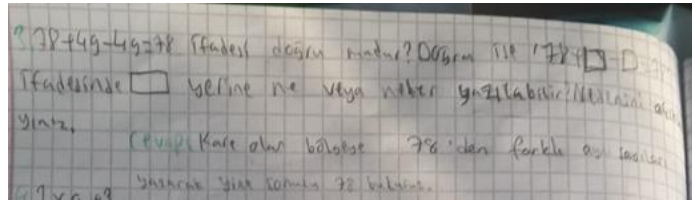 78+49-49=78 İfadesi doğru mudur? Doğru ise '78+□-□=78'
İfadesinde □ yerine ne veya neler yazılabilir? Nedenini
yınız.
Cevap: Kare olan bölgeye 78'den farklı
yazarak yine sonucu 78 buluruz.